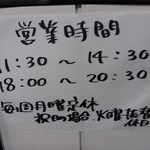 営業時間
11:30 ～ 14:30
18:00 ～ 20:30
毎週月曜定休
祝日の場合、火曜振替
休日